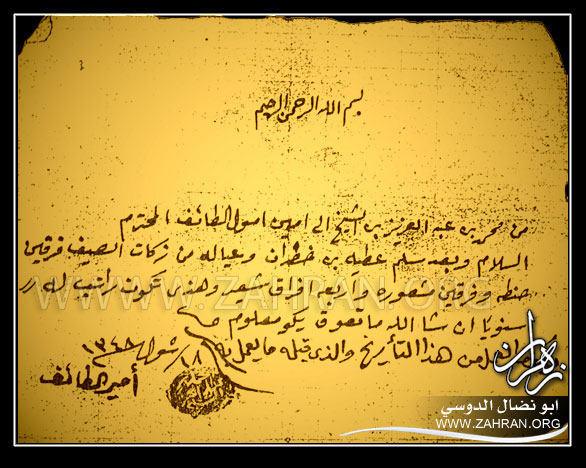 بسم الله الرحمن الرحيم
من محمد بن عبد العزيز بن الشيخ الى امين اموال الطائف المحترم
السلام وبعد سلم عطيه بن خضران وعياله من زكات الصيف فرقين
حنطه وفرقين شعوره واربع افراق شعير وهذى تكون راتب له
سنويا ان شا الله ما تعوق يكو معلوم
من هذا التأريخ والذى قبله ما يعمل به ١٨/ شوال ١٣٤٨
أمير الطائف
WWW.ZAHRAN.ORG
زهران
ابو نضال الدوسي
WWW.ZAHRAN.ORG